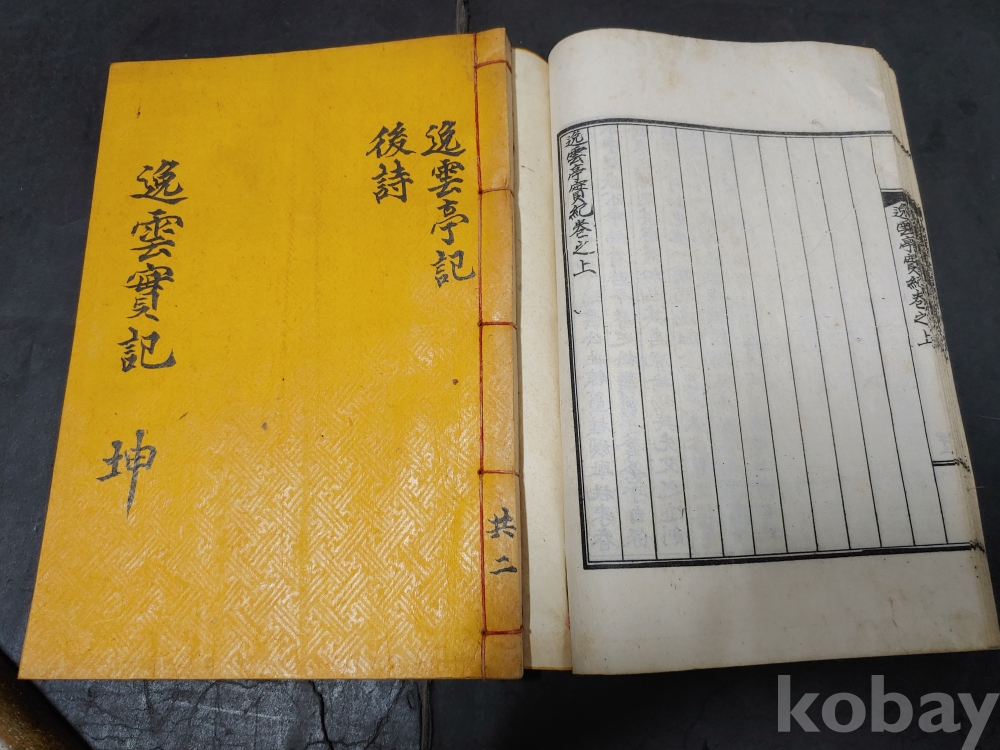 逸雲亭記
後詩
逸雲寶記
坤
共二
逸雲亭實紀卷之上
逸雲亭實紀卷之上
kobay